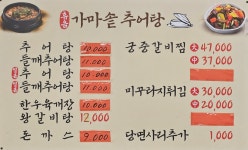 가마솥 추어탕
추 어 탕 10,000
들깨추어탕 11,000
추 어 탕 10,000
들깨추어탕 11,000
한우육개장 10,000
왕갈비탕 12,000
돈 까 스 9,000
궁중갈비찜 大 47,000
中 37,000
미꾸라지튀김 大 30,000
中 20,000
당면사리추가 1,000